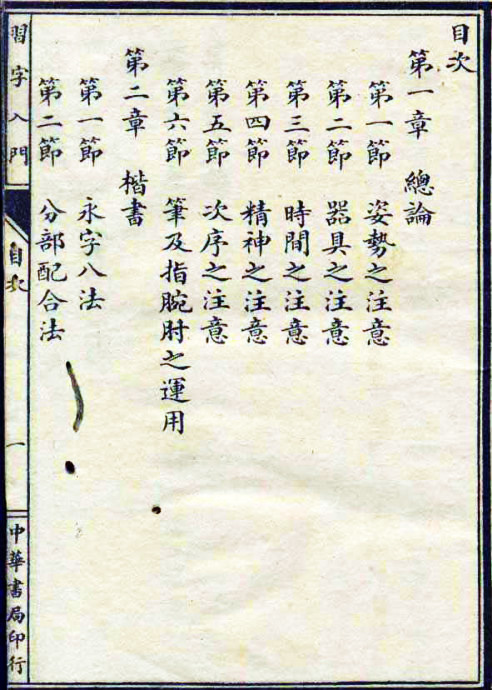 目次
第一章　總論
第一節　姿勢之注意
第二節　器具之注意
第三節　時間之注意
第四節　精神之注意
第五節　次序之注意
第六節　筆及指腕肘之運用
第二章　楷書
第一節　永字八法
第二節　分部配合法
習字入門
目次
一
中華書局印行